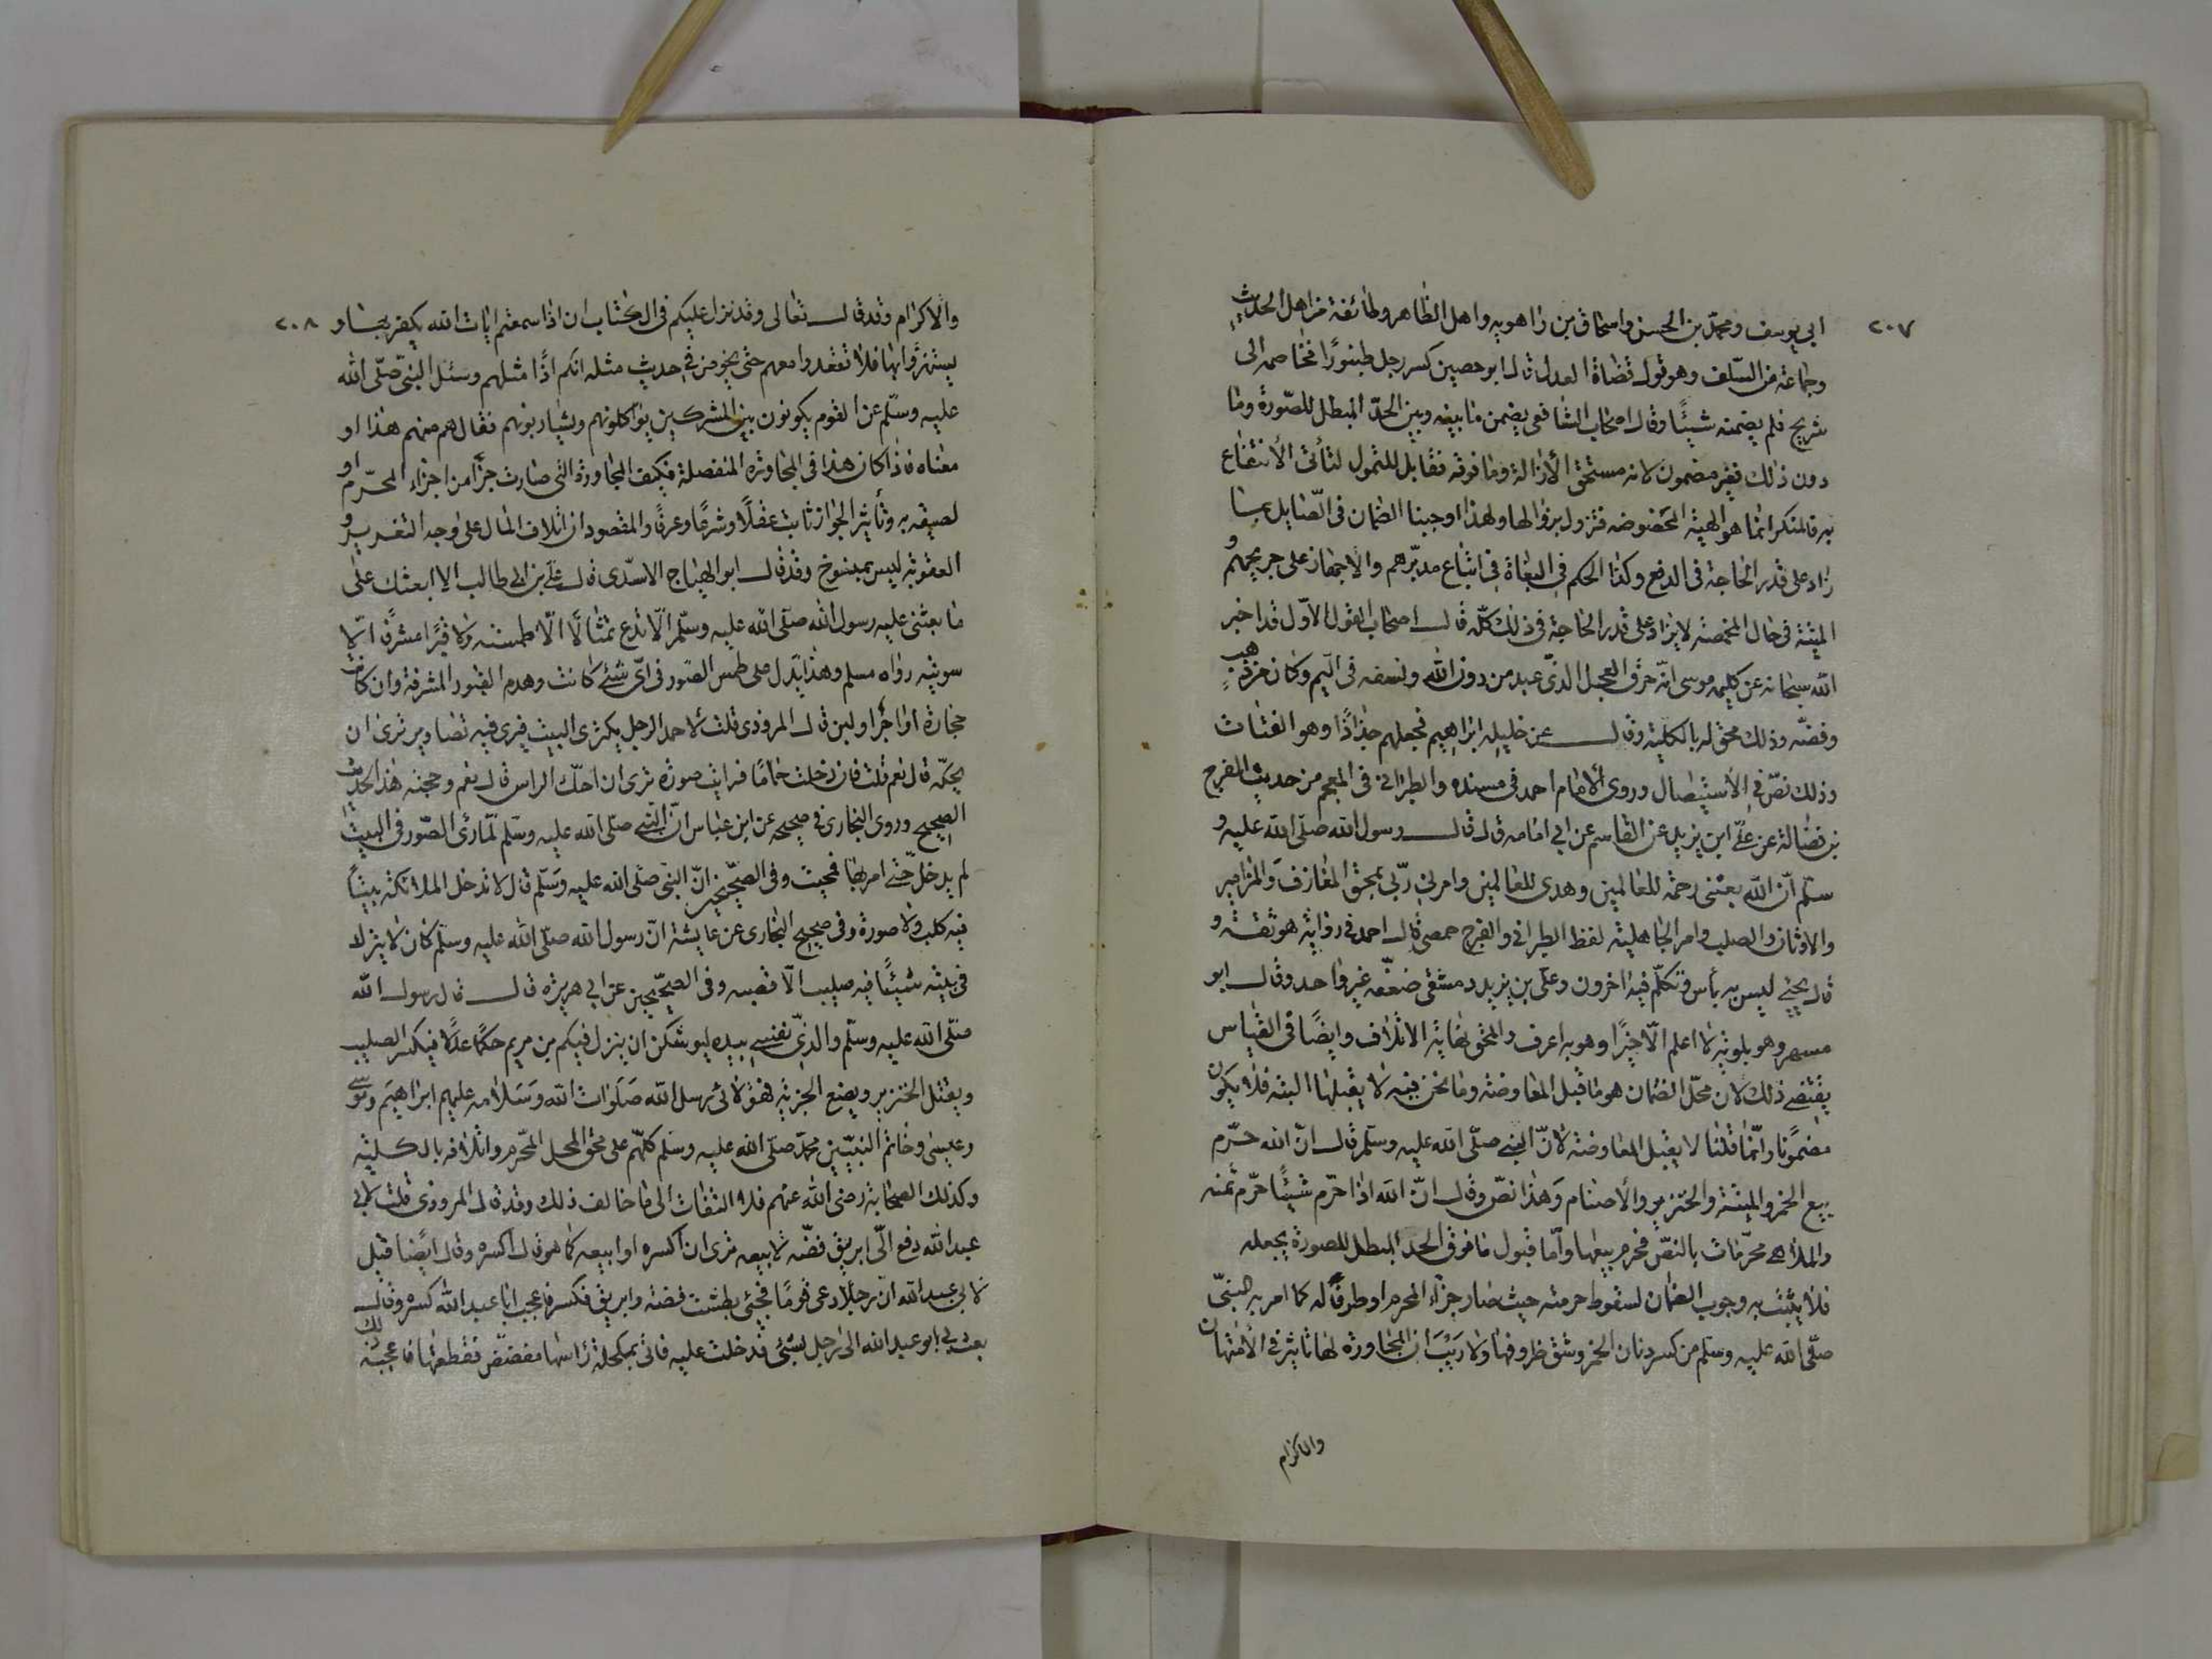 ٢٠٧
ابي يوسف ومحمد بن الحسن واسحاق بن راهويه واهل الظاهر وطائفة من اهل الحديث
وجماعة من السلف وهو قول قضاة العدل قال ابو حصين كسر رجل طنبورًا فخاصمه الى
شريح فلم يضمنه شيئًا وقال اصحاب الشافعي يضمن ما بينه وبين الحدّ المبطل للصّورة وما
دون ذلك فغير مضمون لانه مستحق الأزالة وما فوقه فقابل للتمول لتأتى الأنتفاع
به فالمنكر انما هو الهيئة المخصوصه فتزول بزوالها ولهذا اوجبنا الضمان في الصّايل بما
زاد على قدر الحاجة في الدفع وكذا الحكم في البغاة في اتباع مدبّرهم والاجهاز على جريحهم و
الميتة في حال المخمصة لا يزاد على قدر الحاجة في ذلك كلّه قال اصحاب القول الاوّل قد اخبر
الله سبحانه عن كليمه موسى انّه حرق العجل الذي عبد من دون الله ونسفه في اليم وكان من ذهب
وفضّه وذلك محق له بالكلية وقال عن خليله ابراهيم فجعلهم جذاذًا وهو الفتات
وذلك نصّ في الأستيصال وروى الامام احمد في مسنده والطبراني في المعجم من حديث الفرج
بن فضالة عن علي ابن يزيد عن القاسم عن ابي امامه قال قال رسول الله صلّى الله عليه و
سلّم انّ الله بعثني رحمة للعالمين وهدى للعالمين وامرني ربّي بمحق المعازف والمزامير
والاوثان والصليب وامر الجاهلية لفظ الطبراني والفرج حمصي قال احمد في رواية هو ثقة و
قال يحيى ليس به بأس وتكلّم فيه اخرون وعلي بن يزيد دمشقي ضعّفه غير واحد وقال ابو
مسهر وهو بلويّه لا اعلم الّا خيرًا وهو به اعرف والمحق نهاية الاتلاف وايضًا في القياس
يقتضي ذلك لان محلّ الضمان هو ما قبل المعاوضة وما نحن فيه لا يقبلها البتة فلا يكون
مضمونا وانّما قلنا لا يقبل المعاوضة لانّ النبي صلّى الله عليه وسلّم قال انّ الله حرّم
بيع الخمر والميتة والخنزير والأصنام وهذا نصّ وقال انّ الله اذا حرّم شيئًا حرّم ثمنه
والملاهي محرّمات بالنصّ فحرم بيعها وأمّا قبول ما فوق الحد المبطل للصورة بجعله
فلا يثبت به وجوب الضمان لسقوط حرمته حيث صار جزء المحرم او ظرفًا له كما امر به النبيّ
صلّى الله عليه وسلم من كسر دنان الخمر وشق ظروفها ولا ريب ان المجاورة لها تأثير في الأمتهان
والاكرام
٢٠٨
والاكرام وقد قال تعالى وقد نزل عليكم في الكتاب ان اذا سمعتم ايات الله يكفر بها و
يستهزؤا بها فلا تقعدوا معهم حتى يخوضوا في حديث مثله انكم اذًا مثلهم وسئل النبي صلّى الله
عليه وسلّم عن القوم يكونون بين المشركين يؤاكلونهم ويشاربونهم فقال هم منهم هذا او
معناه فاذا كان هذا في المجاورة المنفصلة فكيف المجاورة التي صارت جزأ من اجزاء المحرّم او
لصيقه به وتأثير الجوار ثابت عقلًا وشرعًا وعرفًا والمقصود ان اتلاف المال على وجه التعزير و
العقوبة ليس بمنسوخ وقد قال ابو الهياج الاسدى قال علي بن ابي طالب الا ابعثك على
ما بعثني عليه رسول الله صلى الله عليه وسلّم الّا تدع تمثالًا الّا طمسته ولا قبرًا مشرفًا الّا
سويته رواه مسلم وهذا يدّل على طمس الصّور في اي شئ كانت وهدم القبور المشرفة وان كانت
حجارة او اجرًا او لبن قال المروذى قلت لاحمد الرجل يكترى البيت فيرى فيه تصاوير ترى ان
يحكّه قال نعم قلت فان دخلت حمّامًا فرايت صورة ترى ان احكّ الراس قال نعم وحجته هذا الحديث
الصحيح وروى البخارى في صحيحه عن ابن عباس انّ النبي صلّى الله عليه وسلّم لمّا رأى الصّور في البيت
لم يدخل حتّى امر بها فمحيت وفي الصحيحين انّ النبي صلّى الله عليه وسلّم قال لا تدخل الملائكة بيتًا
فيه كلب ولا صورة وفي صحيح البخارى عن عايشة انّ رسول الله صلّى الله عليه وسلّم كان لا يترك
في بيته شيئًا فيه صليب الّا قضبه وفي الصحيحين عن ابي هريرة قال قال رسول الله
صلّى الله عليه وسلّم والذي نفسي بيده ليوشكن ان ينزل فيكم من مريم حكمًا عدلًا فيكسر الصليب
ويقتل الخنزير ويضع الجزية فهؤلائ رسل الله صلوات الله وسلامه عليهم ابراهيم وموسى
وعيسى وخاتم النبيّين محمّد صلّى الله عليه وسلم كلهم على محق المحل المحرم واتلافه بالكلية
وكذلك الصحابة رضى الله عنهم فلا التفات الى ما خالف ذلك وقد قال المروذى قلت لابي
عبد الله دفع الّي ابريق فضّه لابيعه ترى ان اكسره او ابيعه كما هو قال اكسره وقال ايضا قيل
لابي عبد الله ان رجلًا دعى قومًا فجئ بطشت فضة وابريق فكسره فاعجب ابا عبد الله كسره وقال
بعثني ابو عبد الله الى رجل بشئ فدخلت عليه فاتى بمكحلة رأسها مفضّض فقطعتها فاعجبه ذلك